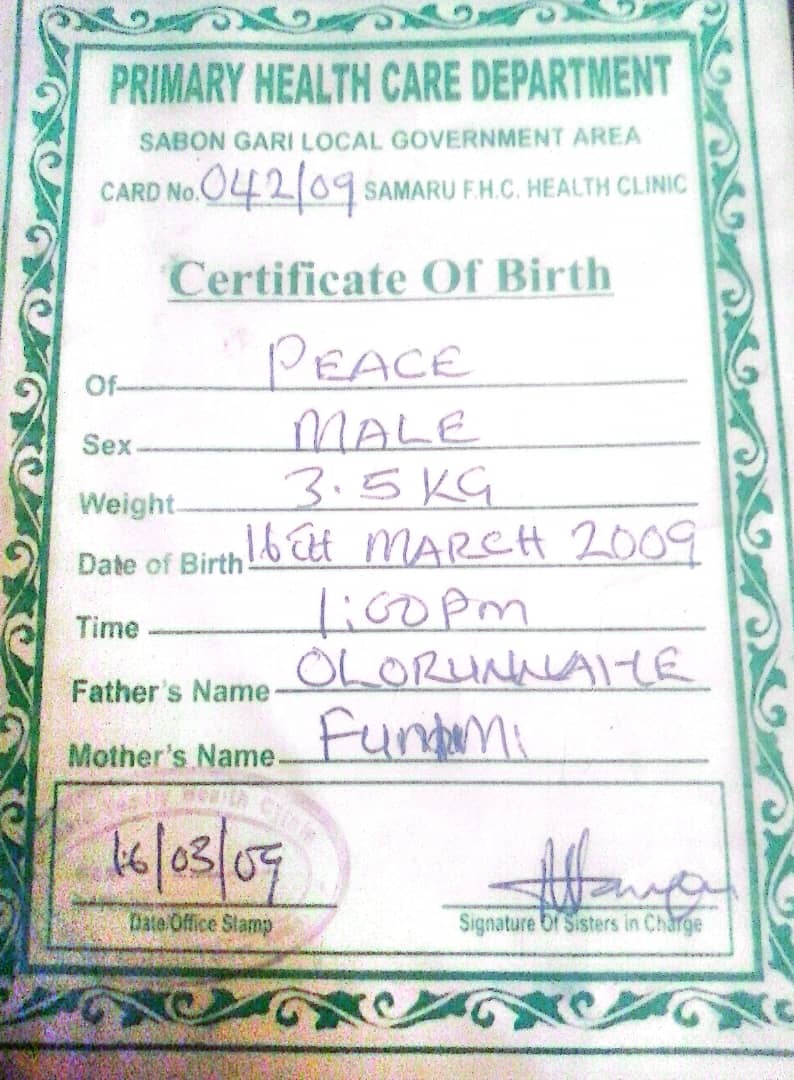 PRIMARY HEALTH CARE DEPARTMENT
SABON GARI LOCAL GOVERNMENT AREA
CARD No. 042/09 SAMARU F.H.C. HEALTH CLINIC
Certificate Of Birth
Of PEACE
Sex MALE
Weight 3.5 KG
Date of Birth 16th MARCH 2009
Time 1:00 pm
Father's Name
Mother's Name
HEALTH CLINIC
16/03/09
Date/Office Stamp
Signature Of Sisters in Charge